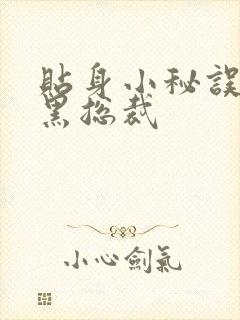 貼身小秘誤
黑总裁
小心劍氣